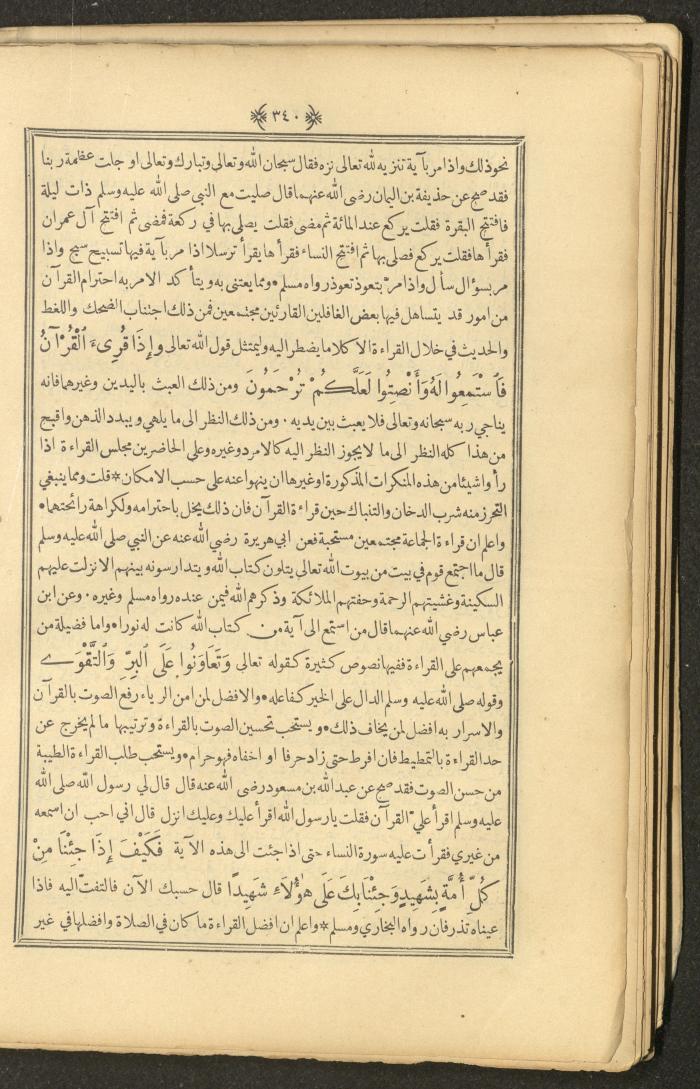 ﴿ ٣٤٠ ﴾
نحو ذلك واذا مر بآية تنزيه لله تعالى نزه فقال سبحان الله وتعالى وتبارك وتعالى او جلت عظمة ربنا
فقد صح عن حذيفة بن اليمان رضي الله عنهما قال صليت مع النبي صلى الله عليه وسلم ذات ليلة
فافتتح البقرة فقلت يركع عند المائة ثم مضى فقلت يصلي بها في ركعة فمضى ثم افتتح آل عمران
فقرأها فقلت يركع فصلى بها ثم افتتح النساء فقرأها يقرأ ترسلا اذا مر بآية فيها تسبيح سبح واذا
مر بسؤال سأل واذا مر بتعوذ تعوذ رواه مسلم • ومما يعتنى به ويتأكد الامر به احترام القرآن
من امور قد يتساهل فيها بعض الغافلين القارئين مجتمعين فمن ذلك اجتناب الضحك واللغط
والحديث في خلال القراءة الا كلاما يضطر اليه وليمتثل قول الله تعالى وَإِذَا قُرِىءَ ٱلْقُرْآنُ
فَاسْتَمِعُوا لَهُ وَأَنْصِتُوا لَعَلَّكُمْ تُرْحَمُونَ ومن ذلك العبث باليدين وغيرهما فانه
يناجي ربه سبحانه وتعالى فلا يعبث بين يديه • ومن ذلك النظر الى ما يلهي ويبدد الذهن واقبح
من هذا كله النظر الى ما لا يجوز النظر اليه كالامرد وغيره وعلى الحاضرين مجلس القراءة اذا
رأوا شيئا من هذه المنكرات المذكورة او غيرها ان ينهوا عنه على حسب الامكان * قلت ومما ينبغي
التحرز منه شرب الدخان والتنباك حين قراءة القرآن فان ذلك يخل باحترامه ولكراهة رائحتهما •
واعلم ان قراءة الجماعة مجتمعين مستحبة فعن ابي هريرة رضي الله عنه عن النبي صلى الله عليه وسلم
قال ما اجتمع قوم في بيت من بيوت الله تعالى يتلون كتاب الله ويتدارسونه بينهم الا نزلت عليهم
السكينة وغشيتهم الرحمة وحفتهم الملائكة وذكرهم الله فيمن عنده رواه مسلم وغيره • وعن ابن
عباس رضي الله عنهما قال من استمع الى آية من كتاب الله كانت له نورا • واما فضيلة من
يجمعهم على القراءة ففيها نصوص كثيرة كقوله تعالى وَتَعَاوَنُوا عَلَى ٱلْبِرِّ وَٱلتَّقْوَى
وقوله صلى الله عليه وسلم الدال على الخير كفاعله • والافضل لمن امن الرياء رفع الصوت بالقرآن
والاسرار به افضل لمن يخاف ذلك • ويستحب تحسين الصوت بالقراءة وترتيبها ما لم يخرج عن
حد القراءة بالتمطيط فان افرط حتى زاد حرفا او اخفاه فهو حرام • ويستحب طلب القراءة الطيبة
من حسن الصوت فقد صح عن عبد الله بن مسعود رضى الله عنه قال قال لي رسول الله صلى الله
عليه وسلم اقرأ علي القرآن فقلت يا رسول الله اقرأ عليك وعليك انزل قال اني احب ان اسمعه
من غيري فقرأت عليه سورة النساء حتى اذا جئت الى هذه الآية فَكَيْفَ إِذَا جِئْنَا مِنْ
كُلِّ أُمَّةٍ بِشَهِيدٍ وَجِئْنَا بِكَ عَلَى هٰؤُلَاءِ شَهِيدًا قال حسبك الآن فالتفت اليه فاذا
عيناه تذرفان رواه البخاري ومسلم * واعلم ان افضل القراءة ما كان في الصلاة وافضلها في غير